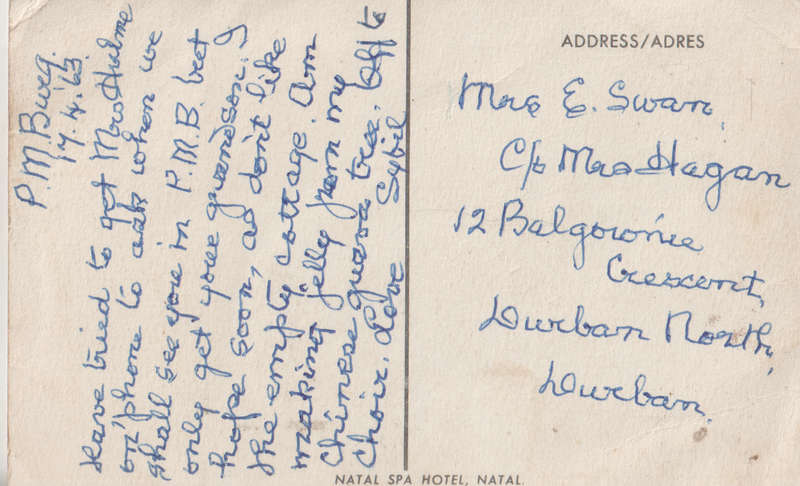 P.M.Burg.
17.4.'63.
Have tried to get Mrs Hulme
on 'phone to ask when we
shall see you in P.M.B. but
only get your grandson. I
hope soon, as don't like
the empty cottage. Am
making jelly from my
Chinese guava tree. Off to
choir. Love Sybil
ADDRESS/ADRES
Mrs E. Swan,
C/o Mrs Hagan
12 Balgownie
Crescent,
Durban North,
Durban.
NATAL SPA HOTEL, NATAL.